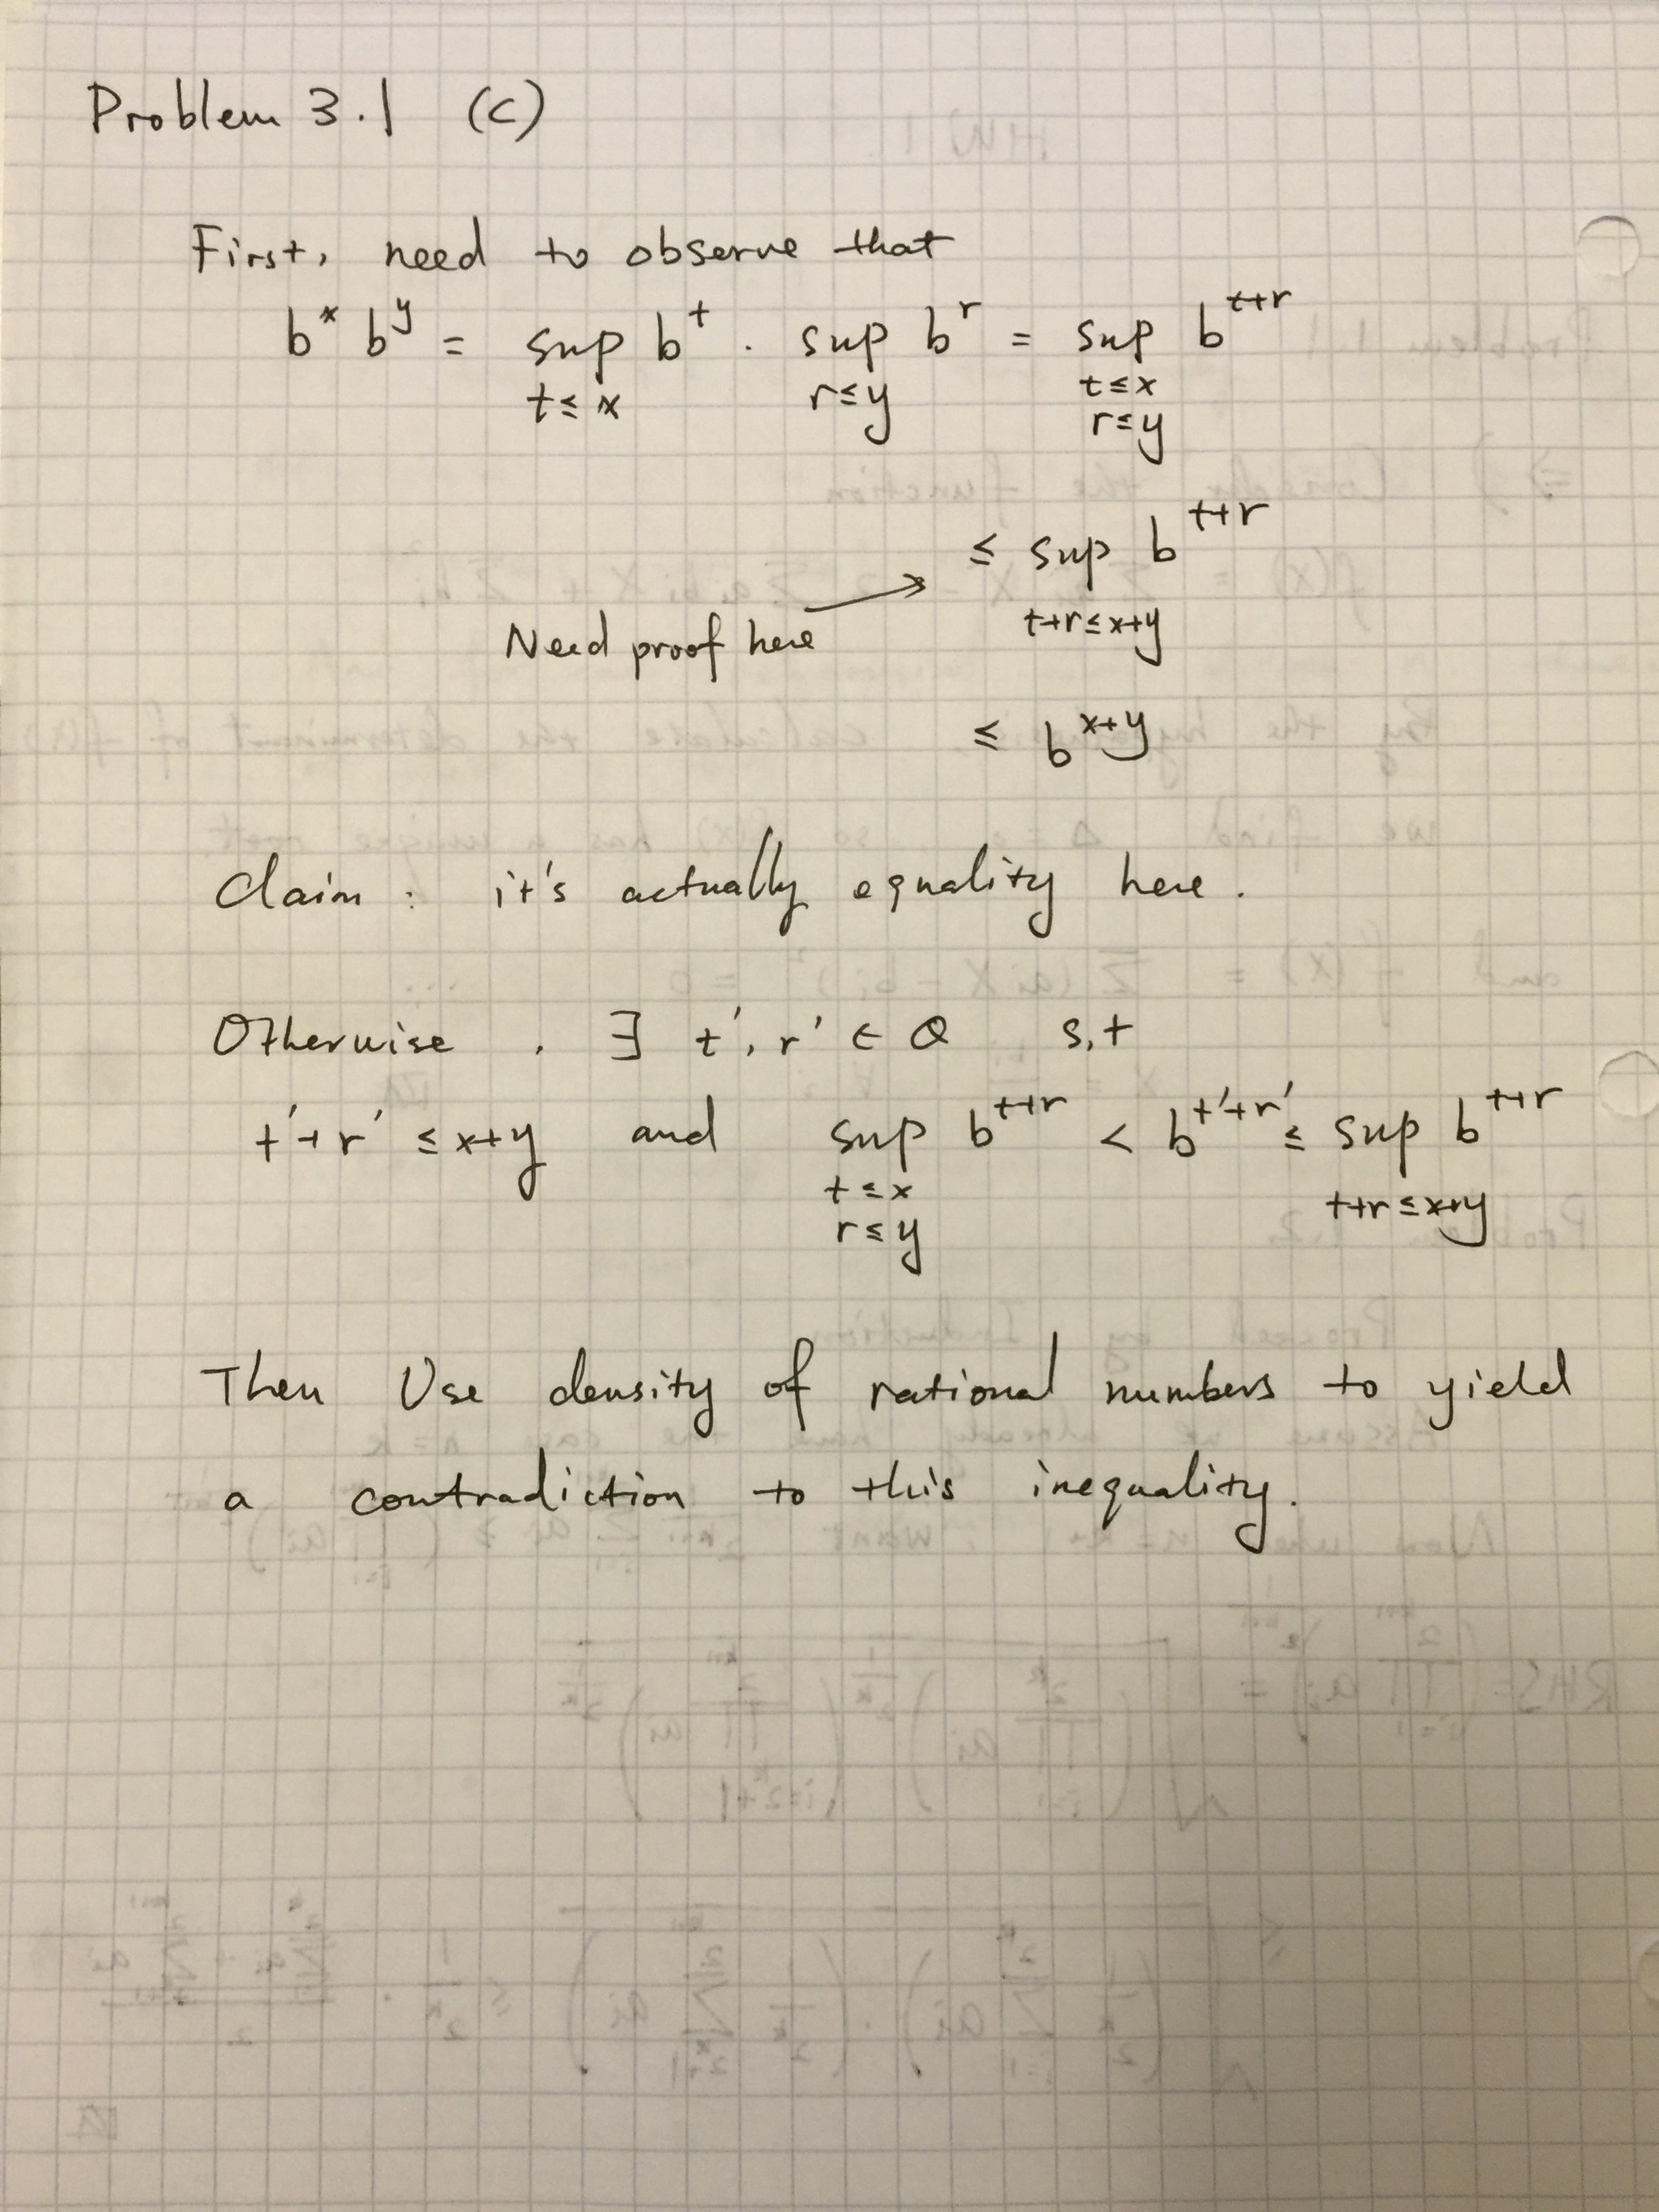 Problem 3.1 (c)
First, need to observe that
b^x b^y = sup b^t · sup b^r = sup b^{t+r}
t≤x r≤y t≤x
r≤y
≤ sup b^{t+r}
Need proof here → t+r≤x+y
≤ b^{x+y}
Claim : it's actually equality here.
Otherwise , ∃ t', r' ∈ Q s,t
t'+r' ≤ x+y and sup b^{t+r} < b^{t'+r'} ≤ sup b^{t+r}
t≤x t+r≤x+y
r≤y
Then Use density of rational numbers to yield
a contradiction to this inequality.